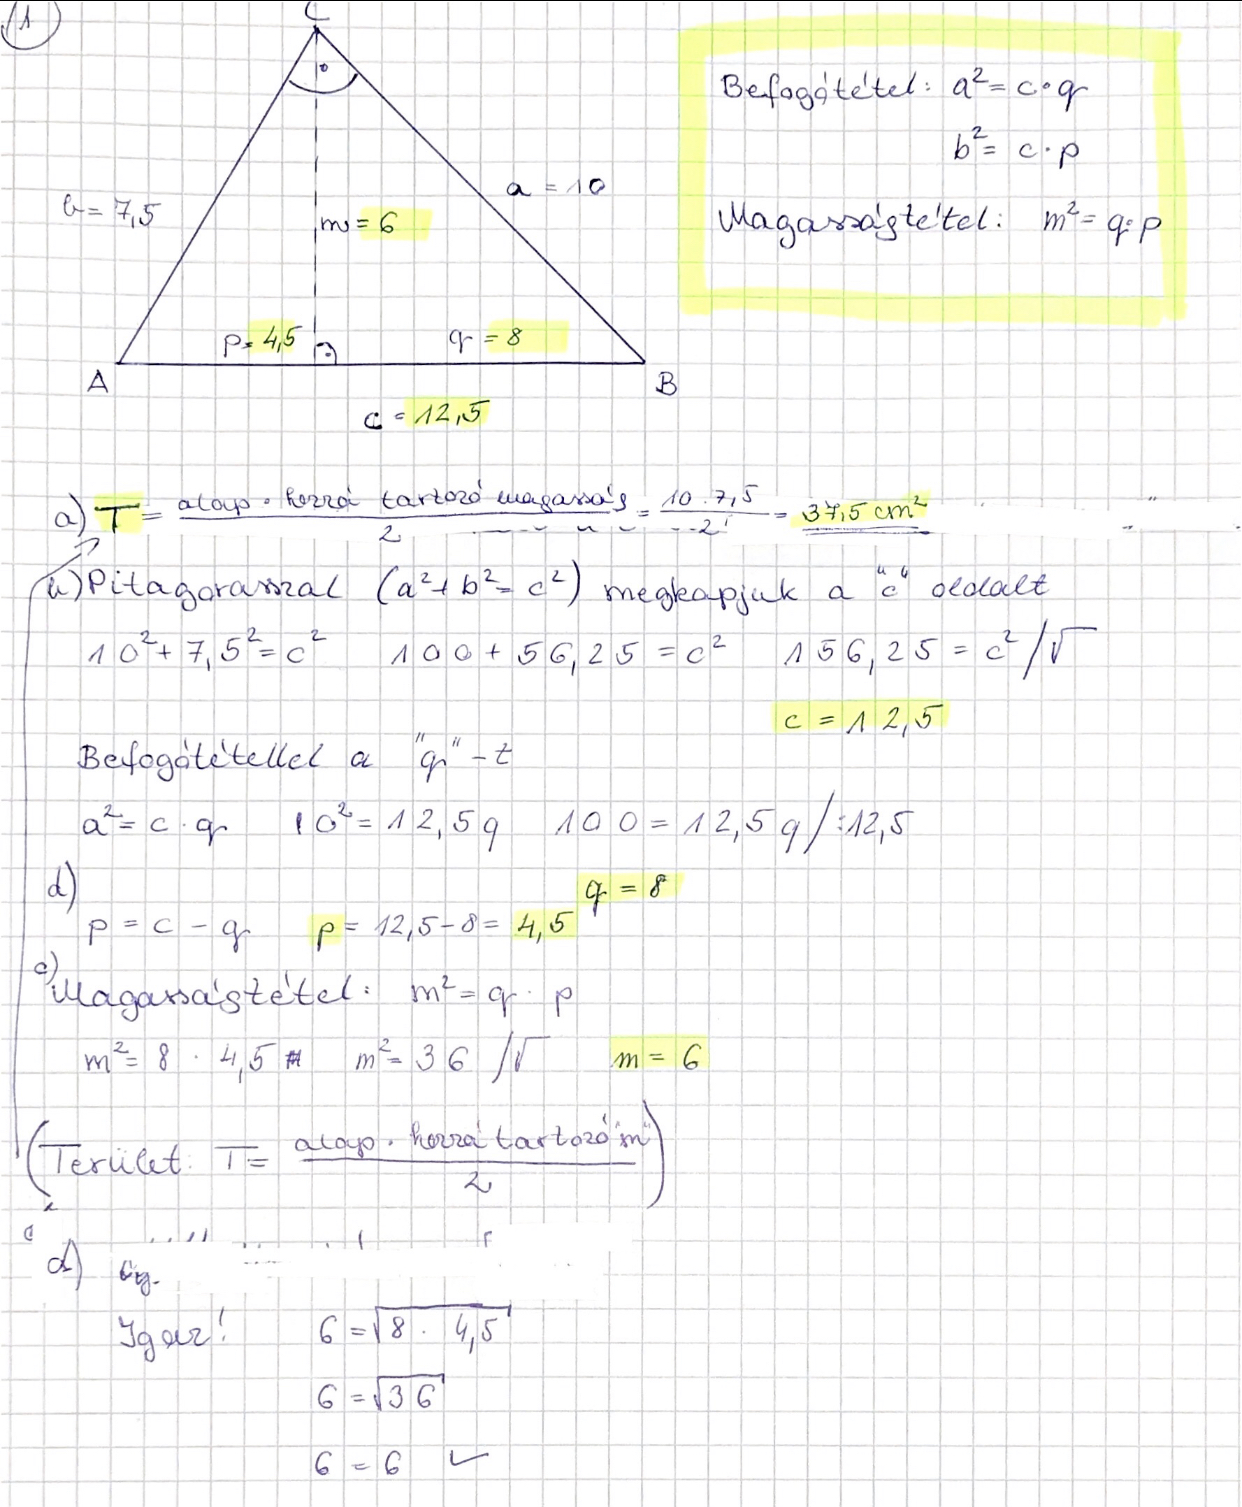 1
C
Befogótétel: a² = c·q
b² = c·p
Magasságtétel: m² = q·p
b = 7,5
a = 10
m = 6
p = 4,5
q = 8
A
B
c = 12,5
a) T = alap · hozzá tartozó magasság / 2 = 10 · 7,5 / 2 = 37,5 cm²
b) Pitagorasszal (a² + b² = c²) megkapjuk a "c" oldalt
10² + 7,5² = c² 100 + 56,25 = c² 156,25 = c² /√
c = 12,5
Befogótétellel a "q"-t
a² = c · q 10² = 12,5q 100 = 12,5q /:12,5
q = 8
d)
p = c - q p = 12,5 - 8 = 4,5
c)
Magasságtétel: m² = q · p
m² = 8 · 4,5 m² = 36 /√ m = 6
(Terület: T = alap · hozzá tartozó "m" / 2)
d)
Igaz! 6 = √8 · 4,5
6 = √36
6 = 6 ✓